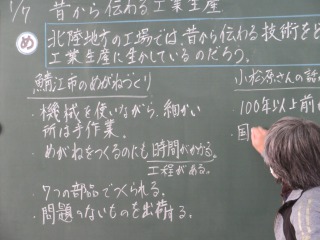 1/7 昔から伝わる工業生産
め
北陸地方の工場では、昔から伝わる技術をど
工業生産に生かしているのだろう。
鯖江市のめがねづくり
・機械を使いながら、細かい
所は手作業。
・めがねをつくるのにも時間がかかる。
工程がある。
・7つの部品でつくられる。
・問題のないものを出荷する。
小松原さんの話
・100年以上前か
・国